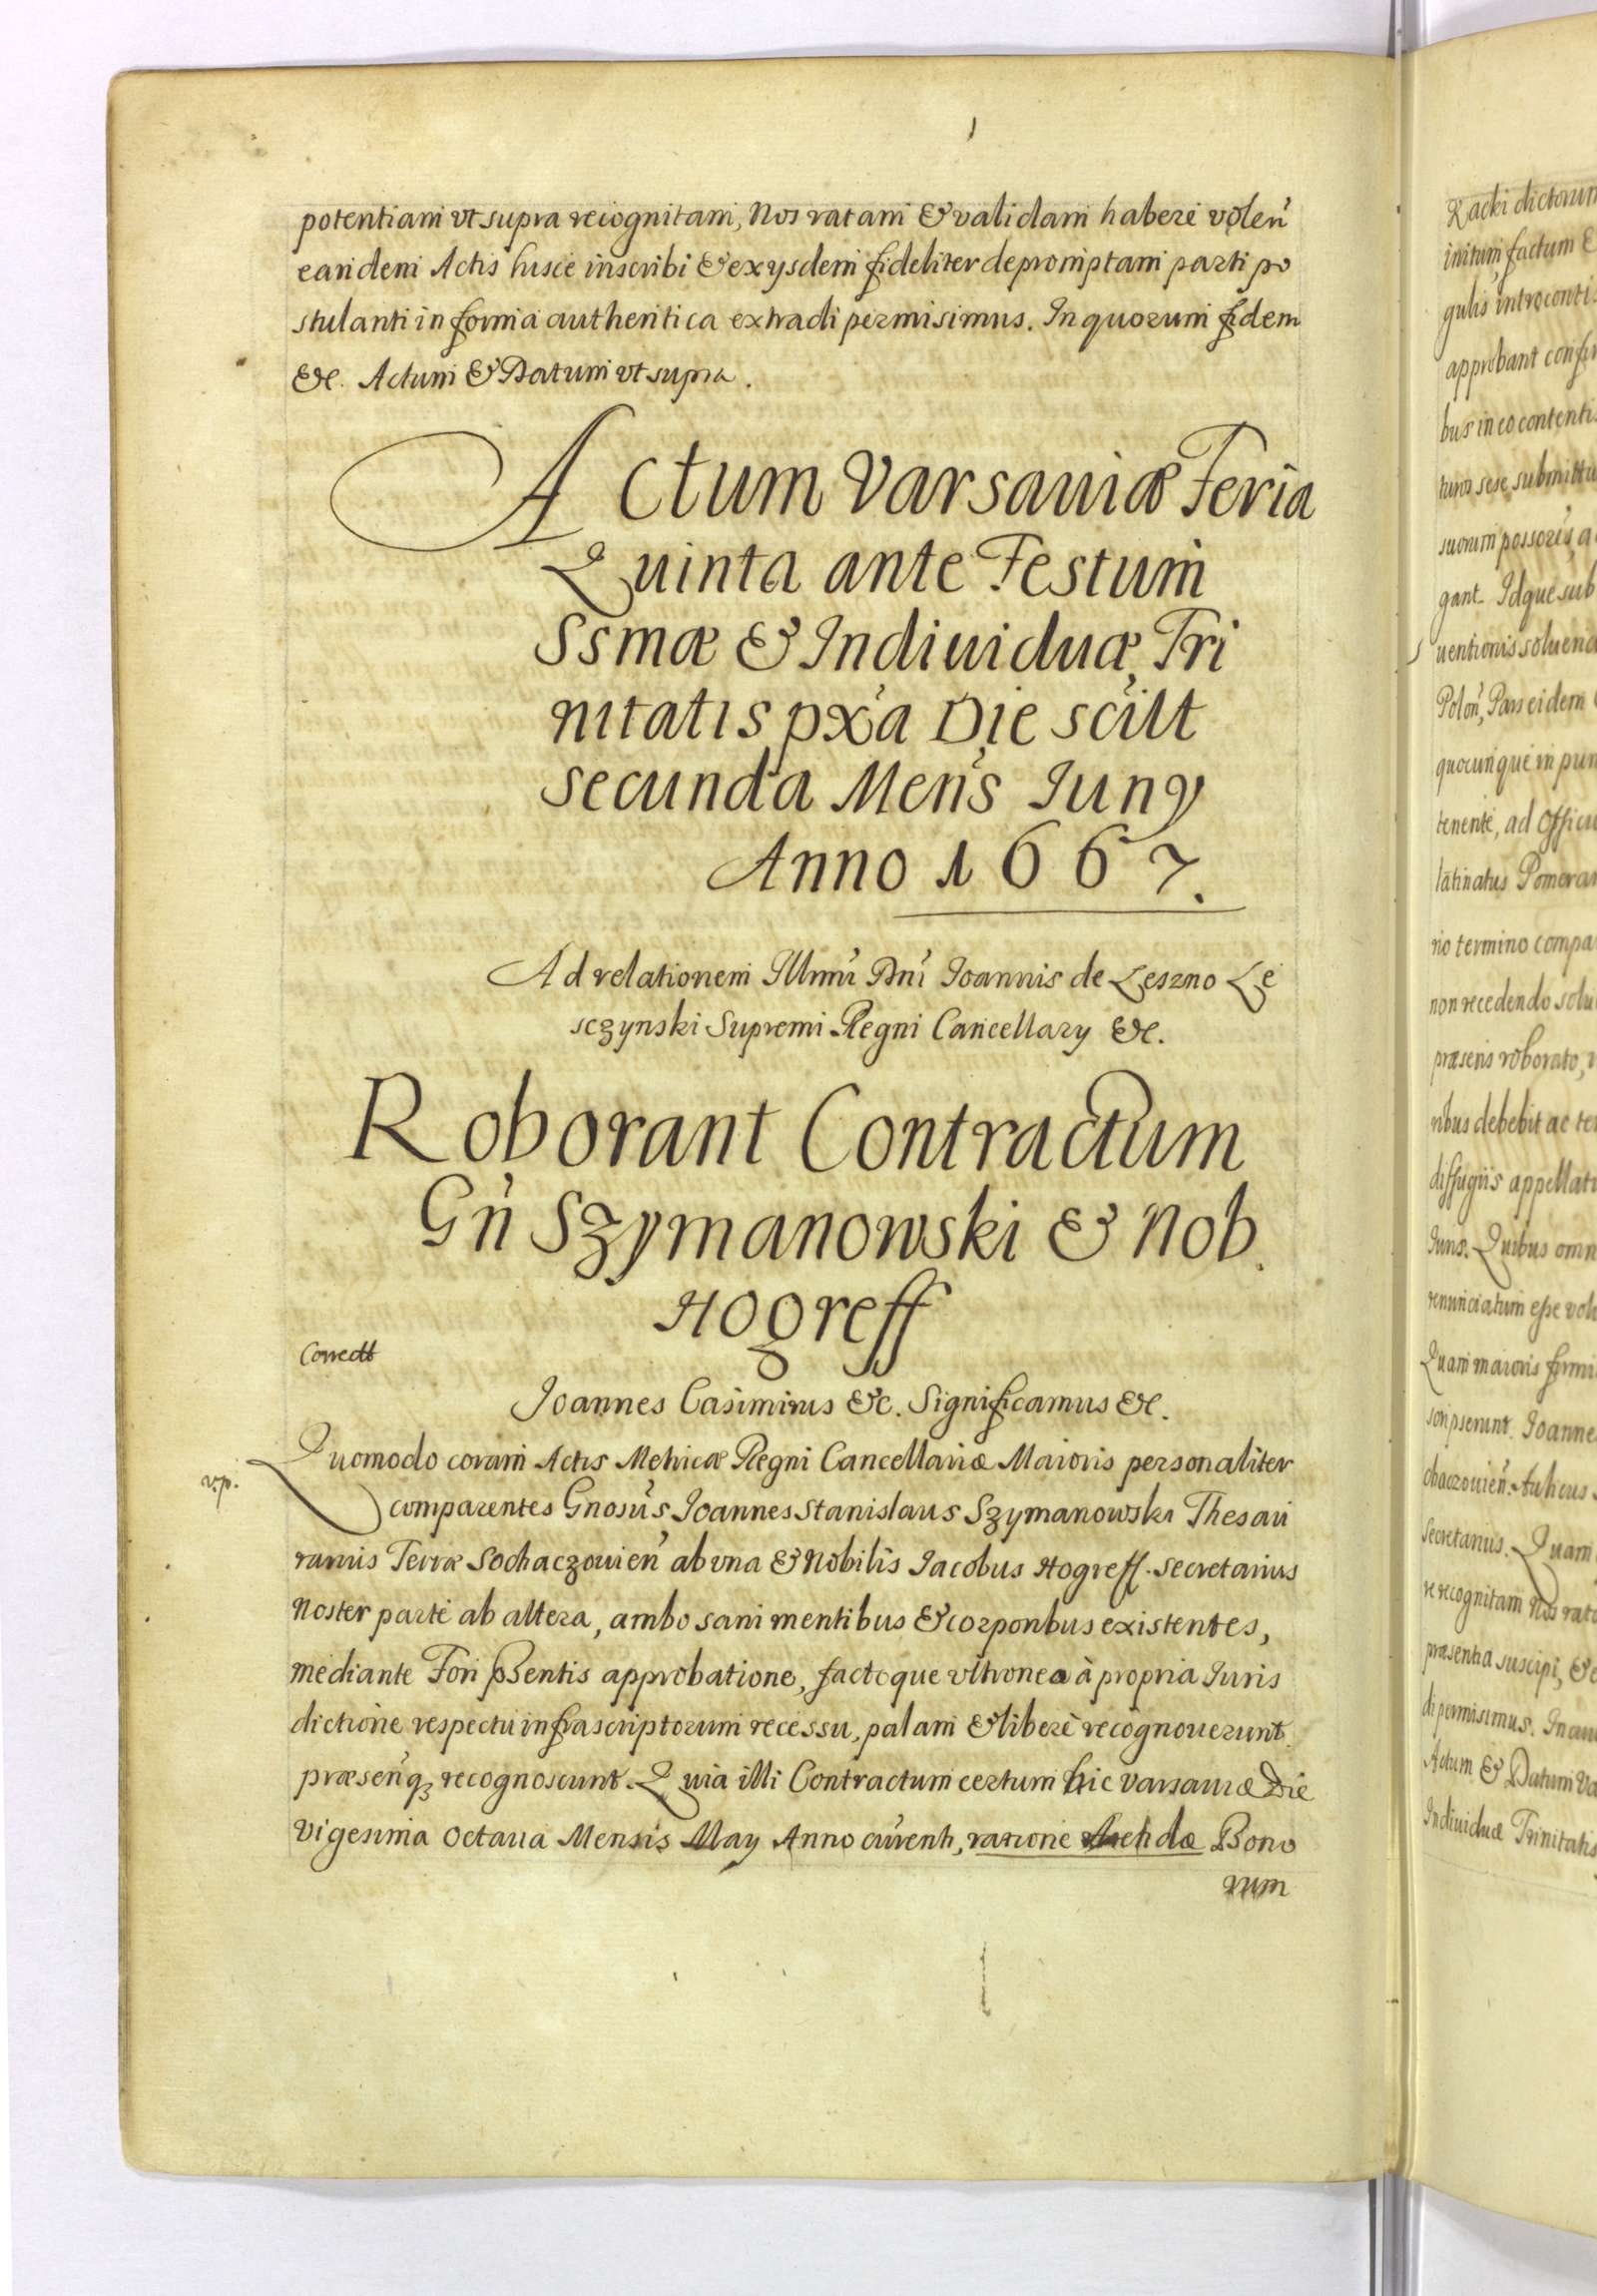 potentiam vt supra recognitam, Nos ratam & validam habere volen̄
eandem Actis hisce inscribi & ex ysdem fideliter depromptam parti po
stulanti in forma authentica extradi permisimus. In quorum fidem
&c. Actum & Datum vt supra.
Actum Varsauiæ Feria
Quinta ante Festum
Ssmæ & Indiuiduæ Tri
nitatis px̃a Die scilt
secunda Mens̃ Iuny
Anno 1667.
Ad relationem Illmi Dni Joannis de Leszno Le
sczynski Supremi Regni Cancellary &c.
Roborant Contractum
Gn̄ Szymanowski & Nob.
Hogreff
Correct
Joannes Casimirus &c. Significamus &c.
Quomodo coram Actis Metricæ Regni Cancellariæ Maioris personaliter
v.p.
comparentes Gnosus Joannes Stanislaus Szymanowski Thesau
rarius Terræ Sochaczouien̄ ab vna & Nobilis Jacobus Hogreff. Secretarius
Noster parte ab altera, ambo sani mentibus & corporibus existentes,
mediante Fori pßentis approbatione, factoque vltroneo à propria Iuris
dictione respectu infrascriptorum recessu, palam & liberè recognouerunt
præsen̄q₃ recognoscunt. Quia illi Contractum certum hic varsauiæ Die
Vigesima Octaua Mensis May Anno currenti, ratione Arendæ Bono
rum
Racki dictorum
initum factum &
gulis introconti
approbant
bus in eo contenti
sese submittu
suorum
gant. Idque sub
uentionis soluend
Polon̄, Pars eidem
quocunque in pun
tenente, ad Officiu
latinatus Pomeran
rio termino compa
non recedendo solu
præsens roborato,
ribus debebit ac
diffugiis appellati
Iuris. Quibus omn
renunciatum eße vol
Quam maioris
scripserunt. Joanne
chaczouien̄. Aulicus
Secretarius. Quam
re recognitam Nos rata
præsentia suscipi, &
di permisimus. In
Actum & Datum Va
Indiuiduæ Trinitatis